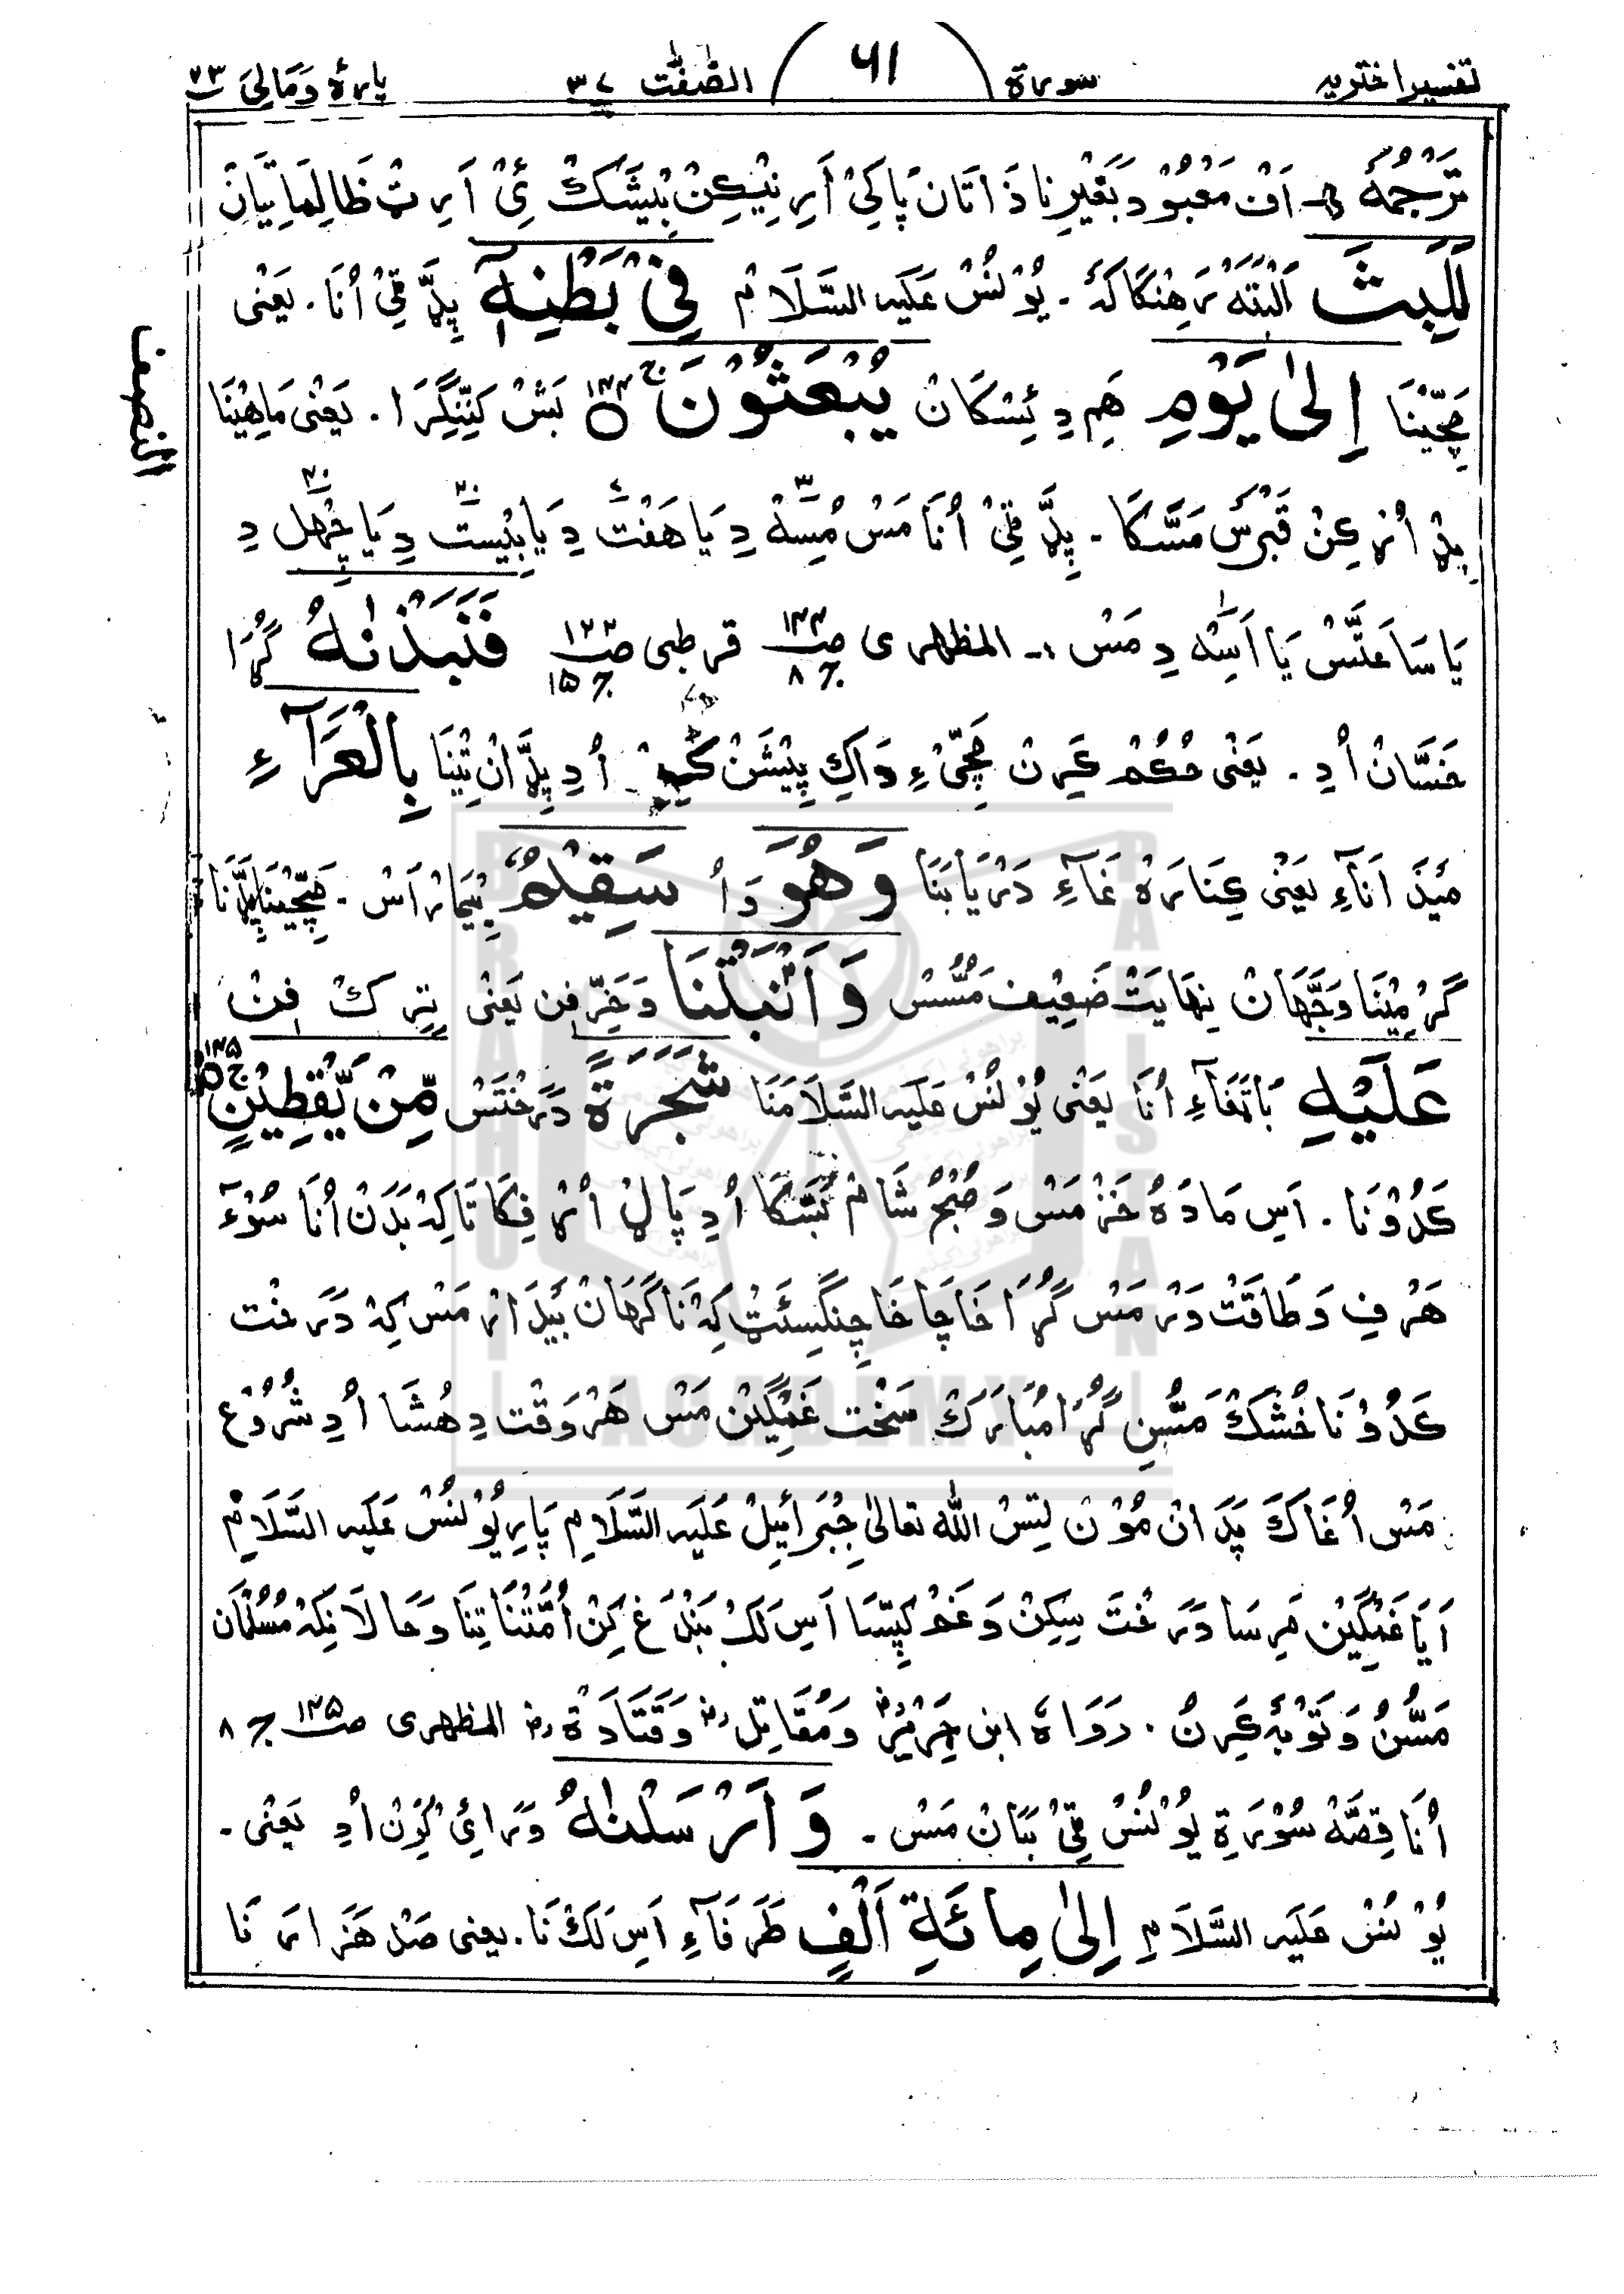 تفسیر اختریه
سورة
٦١
الصّٰفّٰت ٣٧
پارهٔ وَمَالِیَ ٢٣
تَرْجُمهٔ اَفْ مَعْبُوْد بَغَیْرِ نا ذَاتَان پَاکِیْ اَرِ نِیْکِنْ بِیْشَکْ ئِیْ اَرِ ٹْ ظَالِمَاتِیَانْ
لَلَبِثَ اَلْبَتَّهْ رَهِنْگَاکَهْ . یُوْنُسْ عَلَیه السَّلَامْ فِیْ بَطْنِهٖۤ پِڈَّ ٹِیْ اُنَا . یَعْنٖی
مَچِّیْنَا اِلٰی یَوْمِ هَمِ دِ ئِسْکَانْ یُبْعَثُوْنَ ١٤٤ بَشْ کَنِّنِگِرَا . یَعْنٖی مَاهِیْنَا
پِڈْ اُرْکِنْ قَبْرَسْ مَسَّکَا . پِڈَّ ٹِیْ اُنَا مَسْ مُسِّهْ دِ یَا هَفْتَ دِ یَا بِیْسْت دِ یَا چِهْل دِ
یَا سَاعَتَّسْ یَا اَسِّهْ دِ مَسْ . المظهری ص١٤٤ ج٨ قرطبی ص١٢٣ ج١٥ فَنَبَذْنٰهُ گُڑَا
خَسَّانْ اُدِ . یَعْنٖی حُکُمْ کَرِنْ مَچِّیْ ءِ وَاکِ پِیْشَنْ اُدِ پِڈَّ انْ تِیْنَا بِالْعَرَآءِ
مَیْدَانَآءِ یَعْنٖی کِنَارَهْ غَاءِ دَرْیَا بَنَا وَهُوَ وَ اُ سَقِیْمٌ بِیْمَارْ اَسْ . مَچِّیْنَا پِڈَّنَا
گَرْمِیْنَا وَجَّهَانْ نِهَایَتْ ضَعِیْف مَسُّسْ وَاَنْۢبَتْنَا وَ خَرِّفِن یَعْنٖی تِرِکْ فِنْ
عَلَیْهِ بَاتَغَاءِ اُنَا یَعْنٖی یُوْنُسْ عَلَیه السَّلَامَنَا شَجَرَةً دَرَخْتَسْ مِّنْ یَّقْطِیْنٍ ١٤٥
کَدُوْنَا . اَسِ مَادَهْ خَزْ مَسْ وَ صُبْحْ شَامْ بَسَّکَا اُدِ پَالْ اُرْفِکَا تَا کِهْ بَدَنْ اُنَا سُوْءَ
هَرْفِ وَ طَاقَتْ وَرْ مَسْ گُڑَا خَاچَا خَاچِنْگِسَئَتْ کِهْ نَاگَهَانْ بَیْدَارْ مَسْ کِهْ دَرَخْت
کَدُوْنَا خُشْکْ مَسُّنِ گُڑَا مُبَارَکْ سَخْت غَمْگِیْن مَسْ هَرْوَقْت دِ هُشَا اُدِ شُرُوْع
مَسْ اُغَاکَ پَدَ انْ مُوْن لِتِسْ اللّٰه تعالیٰ جِبْرَائِیلْ عَلَیه السَّلَامِ پَارِ یُوْنُسْ عَلَیه السَّلَامْ
اَیَا غَمْگِیْن مَرِسَا دَرَخْتَ سِکِنْ وَ غَمْ کِپِّسَا اَسِ لَکْ بَنْدَغْ کِنْ اُمَّتْنَا تِنَا وَحَالَانِکِهْ مُسُلْمَان
مَسُّنْ وَ تَوْبَهْ کَرِنْ . رَوَاهُ ابن جَرِیْرْ وَمُقَاتِل وَ قَتَادَةْ المظهری ص١٤٥ ج٨
اُنَا قِصَّهْ سُوْرَةِ یُوْنُسْ ٹِیْ بَیَانْ مَسْ . وَاَرْسَلْنٰهُ وَرَائِیْ کَرِنْ اُدِ یَعْنٖی .
یُوْنُسْ عَلَیه السَّلَامِ اِلٰی مِائَةِ اَلْفٍ طَرَفَآءِ اَسِ لَکْ نَا . یعنی صَدْ هَزَارَ نَا
النصف
BRAHUI ACADEMY PAKISTAN